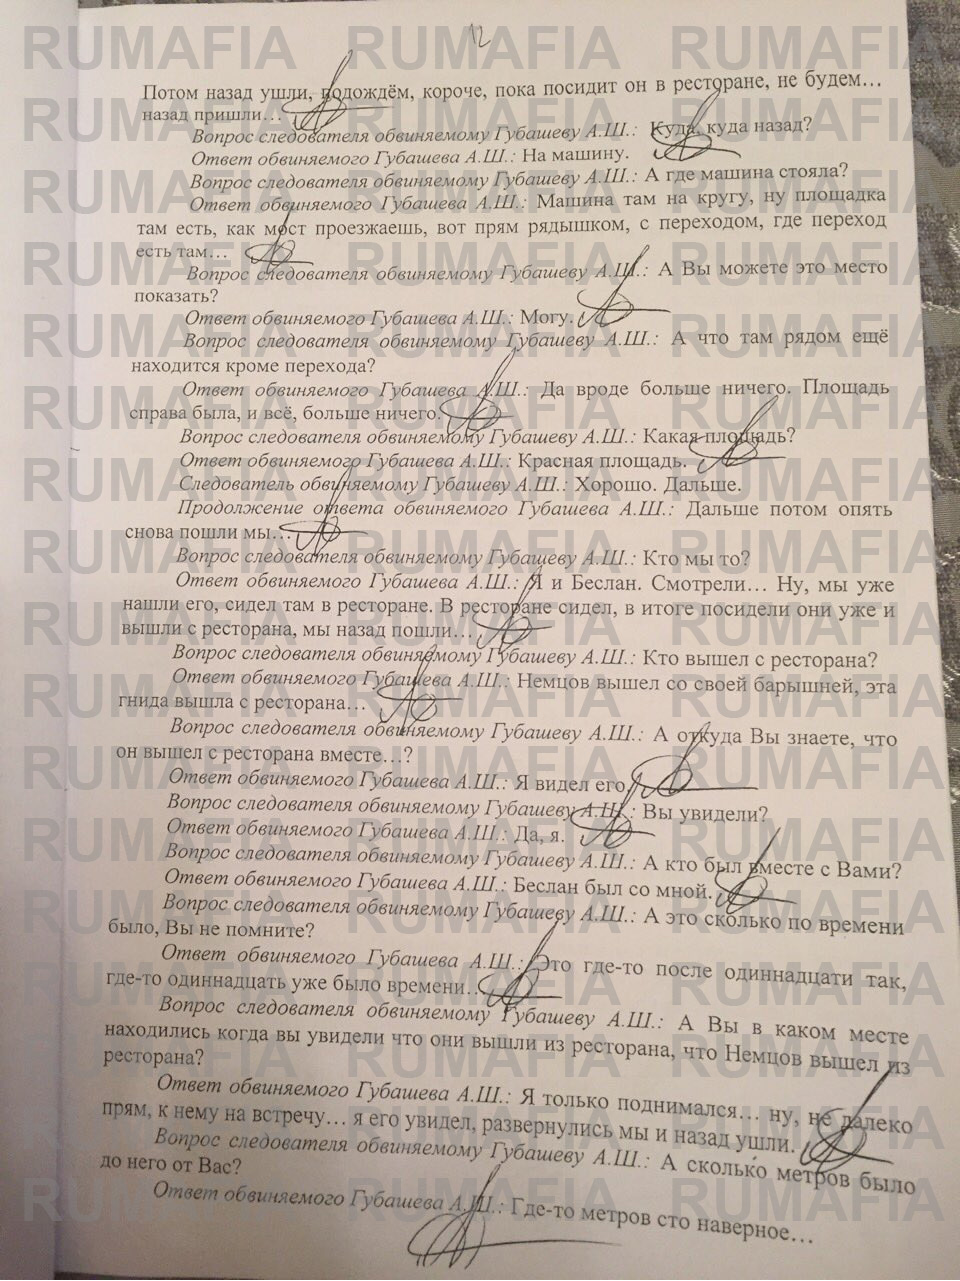 RUMAFIA RUMAFIA RUMAFIA
12
Потом назад ушли, подождём, короче, пока посидит он в ресторане, не будем…
назад пришли…
Вопрос следователя обвиняемому Губашеву А.Ш.: Куда, куда назад?
Ответ обвиняемого Губашева А.Ш.: На машину.
Вопрос следователя обвиняемому Губашеву А.Ш.: А где машина стояла?
Ответ обвиняемого Губашева А.Ш.: Машина там на кругу, ну площадка
там есть, как мост проезжаешь, вот прям рядышком, с переходом, где переход
есть там…
Вопрос следователя обвиняемому Губашеву А.Ш.: А Вы можете это место
показать?
Ответ обвиняемого Губашева А.Ш.: Могу.
Вопрос следователя обвиняемому Губашеву А.Ш.: А что там рядом ещё
находится кроме перехода?
Ответ обвиняемого Губашева А.Ш.: Да вроде больше ничего. Площадь
справа была, и всё, больше ничего.
Вопрос следователя обвиняемому Губашеву А.Ш.: Какая площадь?
Ответ обвиняемого Губашева А.Ш.: Красная площадь.
Следователь обвиняемому Губашеву А.Ш.: Хорошо. Дальше.
Продолжение ответа обвиняемого Губашева А.Ш.: Дальше потом опять
снова пошли мы…
Вопрос следователя обвиняемому Губашеву А.Ш.: Кто мы то?
Ответ обвиняемого Губашева А.Ш.: Я и Беслан. Смотрели… Ну, мы уже
нашли его, сидел там в ресторане. В ресторане сидел, в итоге посидели они уже и
вышли с ресторана, мы назад пошли…
Вопрос следователя обвиняемому Губашеву А.Ш.: Кто вышел с ресторана?
Ответ обвиняемого Губашева А.Ш.: Немцов вышел со своей барышней, эта
гнида вышла с ресторана…
Вопрос следователя обвиняемому Губашеву А.Ш.: А откуда Вы знаете, что
он вышел с ресторана вместе…?
Ответ обвиняемого Губашева А.Ш.: Я видел его.
Вопрос следователя обвиняемому Губашеву А.Ш.: Вы увидели?
Ответ обвиняемого Губашева А.Ш.: Да, я.
Вопрос следователя обвиняемому Губашеву А.Ш.: А кто был вместе с Вами?
Ответ обвиняемого Губашева А.Ш.: Беслан был со мной.
Вопрос следователя обвиняемому Губашеву А.Ш.: А это сколько по времени
было, Вы не помните?
Ответ обвиняемого Губашева А.Ш.: Это где-то после одиннадцати так,
где-то одиннадцать уже было времени…
Вопрос следователя обвиняемому Губашеву А.Ш.: А Вы в каком месте
находились когда вы увидели что они вышли из ресторана, что Немцов вышел из
ресторана?
Ответ обвиняемого Губашева А.Ш.: Я только поднимался… ну, не далеко
прям, к нему на встречу… я его увидел, развернулись мы и назад ушли.
Вопрос следователя обвиняемому Губашеву А.Ш.: А сколько метров было
до него от Вас?
Ответ обвиняемого Губашева А.Ш.: Где-то метров сто наверное…